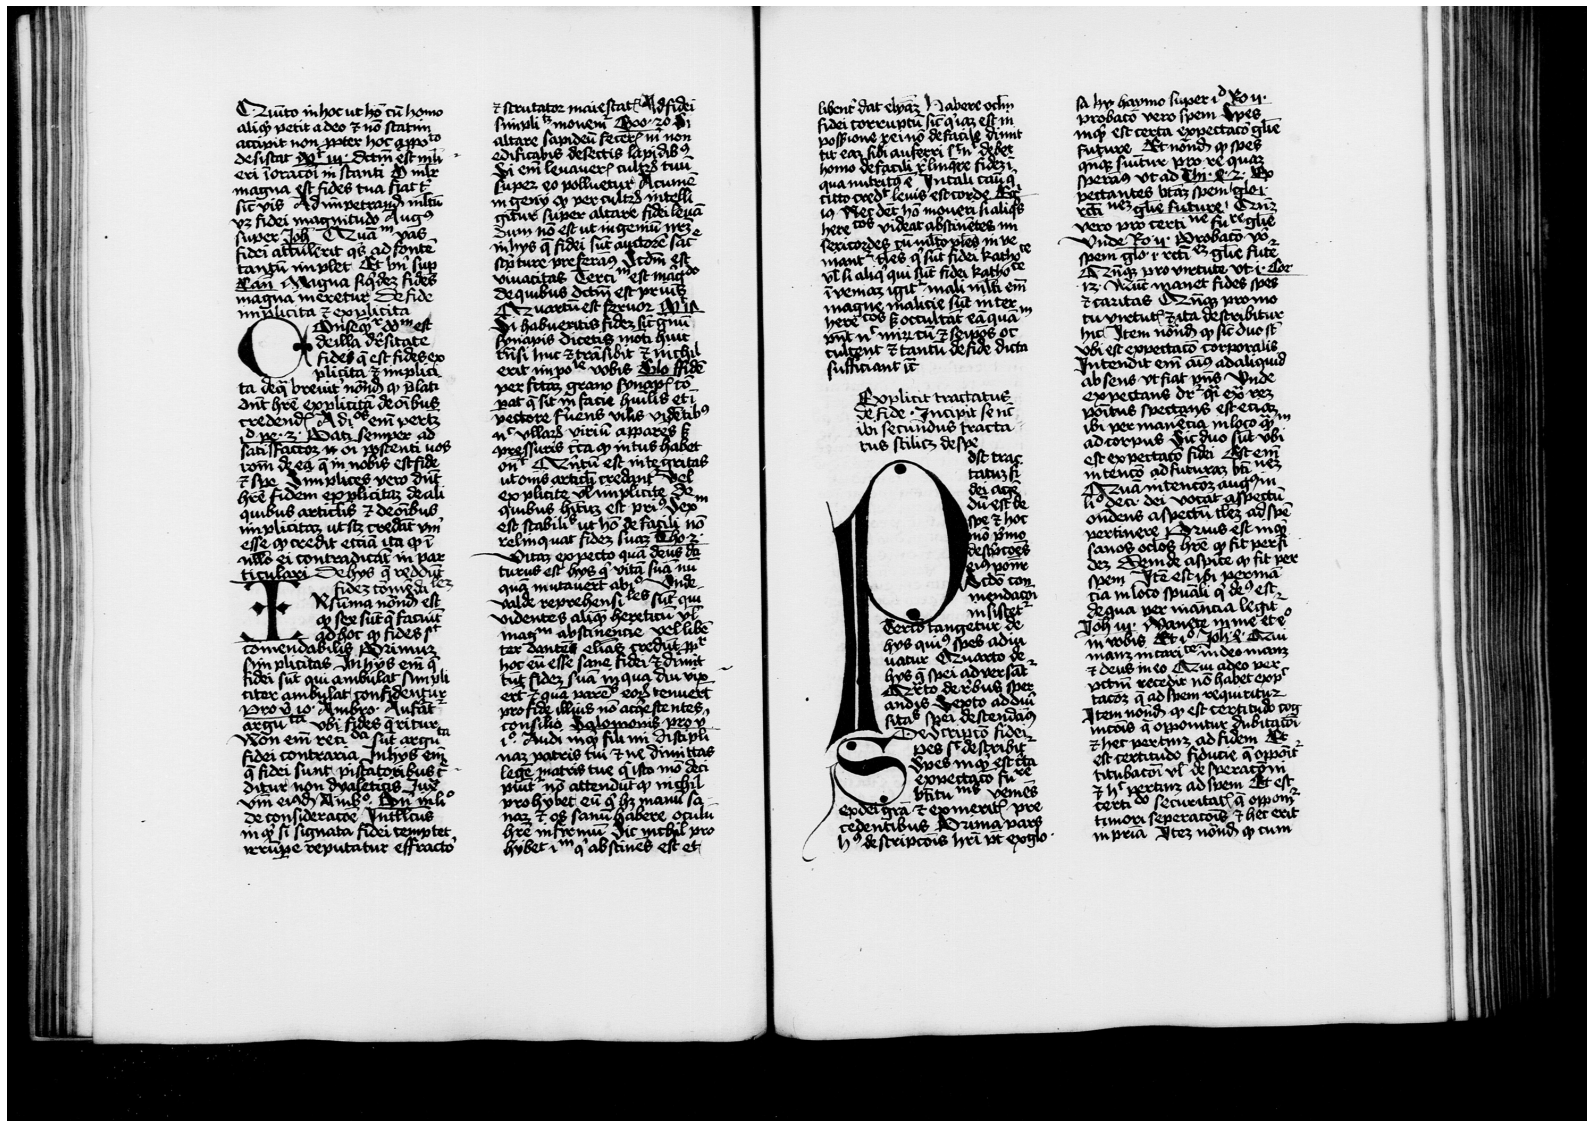 Quīto in hoc ut hō cū homo
aliqͥd petit a deo et nō statim
accipit non ꝓpter hoc a ꝓpoto
desistat Mt iii. dcm̄ est mͥli
eri ī oratōi instanti O mlr̄
magna est fides tua fiat tͥ
sic vis Ad impetrand ml̄tū
vꝫ fidei magnitudo Augꝰ
super Joh̄ Quā vas
fidei attulerit qͥs ad fontē
tantū implet Et bn̄ sup
Magna siqͥdeꝫ fides
magna meretur De fide
implicita et explicita
Onseqr̄ dm̄ est
de illa diu̾sitate
fides q̄ est fides ex
plicita et implici
ta de q̄ breuit̾ nōnd̄ qͥ plati
dn̄t hr̄e explicitā de oībus
credend
pe. 3. Pati semper ad
satisfactōꝫ oī poscenti vos
rōm̄ de ea q̄ in nobis est fide
et spe Simplices vero dn̄t
hr̄e fidem explicitaꝫ de ali
quibus articlis et de oībus
implicitaꝫ ut scꝫ credāt vm̄
esse qͥd credit eccīa ita qͥ ī
nllo ei contradicāt in par
ticulari De hys q̄ reddūt
fideꝫ comēdabileꝫ
N sūma nōnd̄ est
qͥ sex sūt q̄ faciūt
ad hoc qͥ fides sͭ
comendabilis Primuꝫ
simplicitas In hys em̄ q̄
fidei sūt qui ambulat simpli
citer ambulat confidenter
prou̾ io. Ambro. Aufāt
argūta vbi fides q̄ritur
Non em̄ recta sūt argūta
fidei contraria In hys em̄
q̄ fidei sunt piscatoribus c̄
ditur non dyaleticis
vm̄ eiusd Ambꝰ.
de consideracōe Intlctus
inqͥt si signata fidei temptet
irrūpe reputatur effracto
et scrutator maiestatꝭ Ad fidei
simplicitateꝫ monem̄ Exo. 20 Si
altare lapideū fecerꝭ m non
edificabis de sectis lapidibꝰ
Si em̄ leuauerꝭ cultrū tuū
super eo polluetur Acumē
ingeny qͥ per cultrū intelli
gitur super altare fidei leuā
dum nō est ut ingeniū nrm̄
in hys q̄ fidei sūt auctore sac̄
scͥpture preferas Scdm̄ est
viuacitas Terciū est magdo
de quibus dictū est prius
Quartū est feruor
Si habueritis fideꝫ sic gnū
synapis dicetis moti huic
trn̄si huc et trāsibit et nichil
erit impole vobis Glo ffidē
perfctaꝫ grano synapꝭ cō
pat q̄ sit in facie huilis et ī
pectore feruens vilis videtibꝰ
nͥ ullarū viriū apparēs sꝫ
pressuris tcta qͥd intus habet
on̄t Quītū est integritas
ut om̄s articli credant̾ vel
explicite vl̄ implicite De
quibus hituꝫ est priꝰ Sextū
est stabilis ut hō de facili nō
relinquat fideꝫ suaꝫ Tho 2.
Vitaꝫ expecto quā deus da
turus est hys q̄ vitā suā nū
quā mutauert ab ipo Unde
valde reprehensiles sūt qui
videntes aliqͥm hereticū vl̄
magni abstinencie vel libe
ter dantē elīas credūt pp̄t
hoc eū esse sane fidei et dimit
tūt fideꝫ suā in qua diu vix
ert et quā parētꝭ eoꝝ tenuert
pro fide illius nō acqͥescentes
consilio Salomonis prou̾
i. Audi inqͥt fili mi discipli
naꝫ patris tui et ne dimittas
legē matris tue q̄ isto mō deci
piūt nō attendūt qͥ nichil
prohybet eū q̄ hꝫ manū sa
naꝫ et os sanū habere oculū
hr̄e infirmū Sic nichil pro
hybet q̄ abstinēs est et
libent̾ dat elyās habere oclm̄
fidei corruptū sicͥ qͥaꝫ est in
possione rei nō de facile dimit
tit eaꝫ sibi auferri sͥ debet
homo de facili relinqͥre fideꝫ ī
qua nutritꝰ ē In tali causa q̄
cito credͥt leuis est corde
iꝰ Nec debꝫ hō moueri si aliqͦs
hereticos videat abstinētes mi
sericordes cū ml̄tos pl̄es inve
niant̾ tales qͥ sūt fidei katholice
vl̄ si aliqͥ qui sūt fidei katholice
īveniaꝫ igit̾ mali mlti em̄
magne malicie sūt inter
hereticos sꝫ occultāt eā quā
pn̄t nͥ mirū cū et seipos oc
cultent et tantū de fide dicta
sufficiant ī
Explicit tractatus
de fide. Incipit se n̄t
ibi secundus tracta
tus scilicꝫ de spe
Ost trac
tatuꝫ fi
dei age
dū est de
spe et hoc
mō pͥmo
descͥpcōes
eiꝰ pont̾
Scdō com
mendacōi
insistet̾
Tertō tangetur de
hys quiꝰ spes adiu
uatur Quarto de
hys q̄ spei aduersāt̾
Qīto de rebus sper
andis Septo ad diu̾
sitates spei descendāꝰ
Descripcō fidei
pes sͥ describit̾
Spes inqͥt est cta
expectaco future
btītudinis venīes
ex dei gra et ex meritꝭ pre
cedentibus Prima pars
hꝰ descripcōis hr̄i pt̄ ex glo
sa hy haymo super id Ro ii.
probacō vero spem Spes
inqͥt est certa expectacō glīe
future Et nōnd̄ qͥ spes
qnqꝫ sumitur pro re quaꝫ
speraꝰ ut ad Thi. 2. Ex
pectantes btāꝫ spem glo i.
rectionē glīe future Qnqꝫ
vero pro certitudine future glīe
Unde Ro ii. Probacō vo
spem glo i rectionē glīe fute
Qnqꝫ pro virtute ut i. Cor
13. Nunc manet fides spes
et caritas Qnqꝫ pro mo
tu virtutꝭ et ita describitur
hic Item nōnd̄ qͥ sic duo st̄
vbi est expectacō corporalis
Intendit em̄ aīmꝰ ad aliquid
absens ut fiat pn̄s Unde
expectans dr̄ q̄si ex rez
positus spectans est eciaꝫ
ibi permanecia in loco qͥm
ad corpus Sic duo sūt vbi
est expectacō fidei Est em̄
intencō ad futuraꝫ btitudineꝫ
Quā intencōꝫ augꝰ in
liͦ deci. dei vocat aspectū
ondens aspectū illeꝫ ad spē
pertinere Prius est inqͥt
sanos oclos hr̄e qͥ fit per fi
deꝫ Deinde aspīce qͥ fit per
spem Itē est ibi permā
cia in loco spūali q̄ deꝰ est
de qua permanecia legit̾
Joh iii. Manete in me et ego
in vobis Et io Joh 4. Qui
manꝫ in caritate in deo manꝫ
et deus in eo Qui a deo per
pctm̄ recedit nō habet expec
tacōꝫ q̄ ad spem requiritur
Item nōnd̄ qͥ est certitudo cog
nicōis q̄ opponitur dubitacōi
et hec pertinꝫ ad fidem Et
est certitudo fiducie q̄ oppoit̾
titubacōi vl̄ desperacōm
et hͥ pertinꝫ ad spem Et est
certitudo securitatꝭ q̄ oppoit̾
timori seperacōis et hec erit
in pria Iteꝫ nōnd̄ qͥ cum